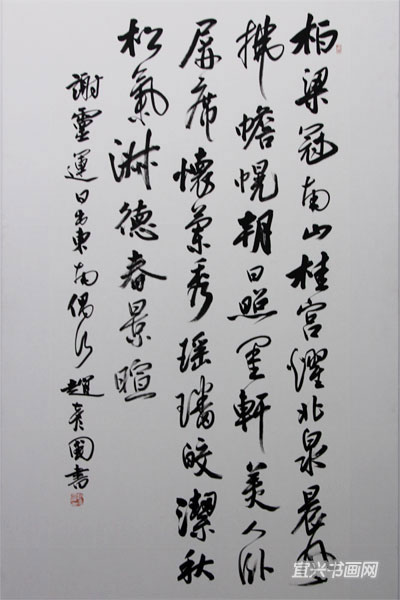 柏梁冠南山桂宮燿北泉晨風
拂幨幌朝日照閨軒美人卧
屏席懷蘭秀瑶璠皎潔秋
松氣淑德春景暄
謝靈運日出東南隅行 趙彥國書
宜兴书画网